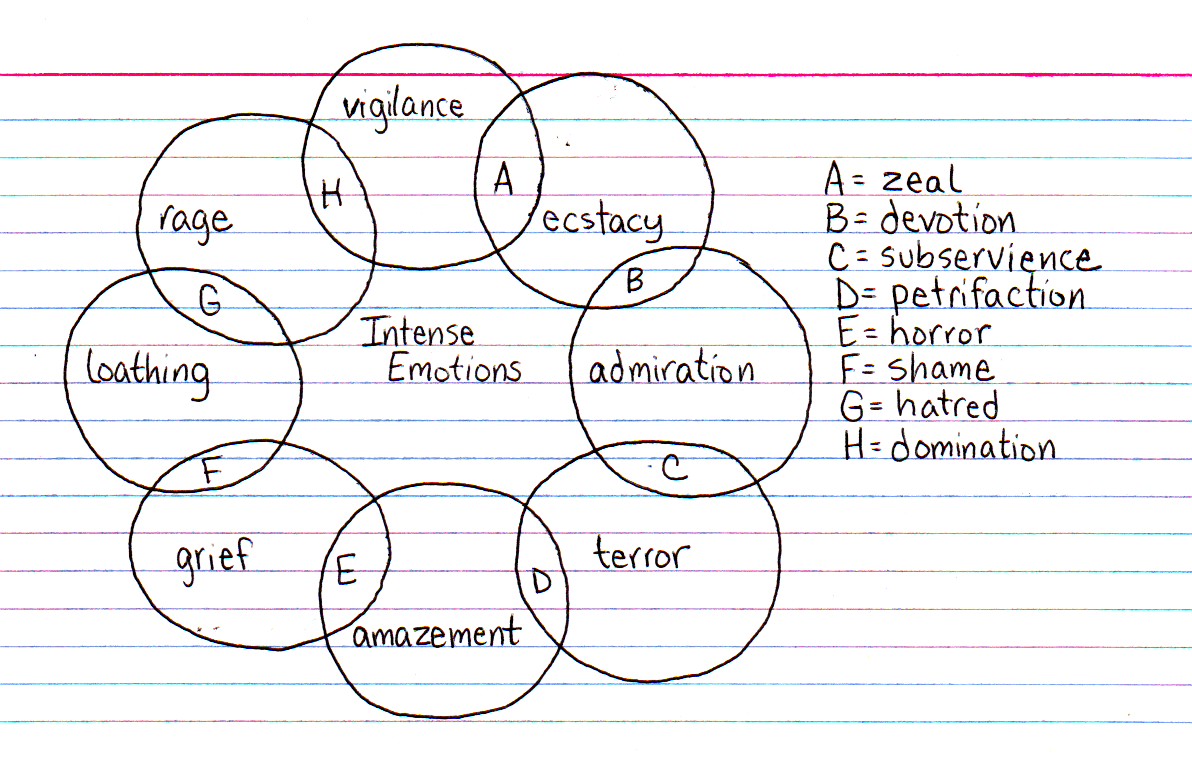 vigilance
A
ecstacy
H
rage
B
G
Intense
Emotions
loathing
admiration
F
C
grief
E
terror
D
amazement
A= zeal
B= devotion
C= subservience
D= petrifaction
E= horror
F= shame
G= hatred
H= domination